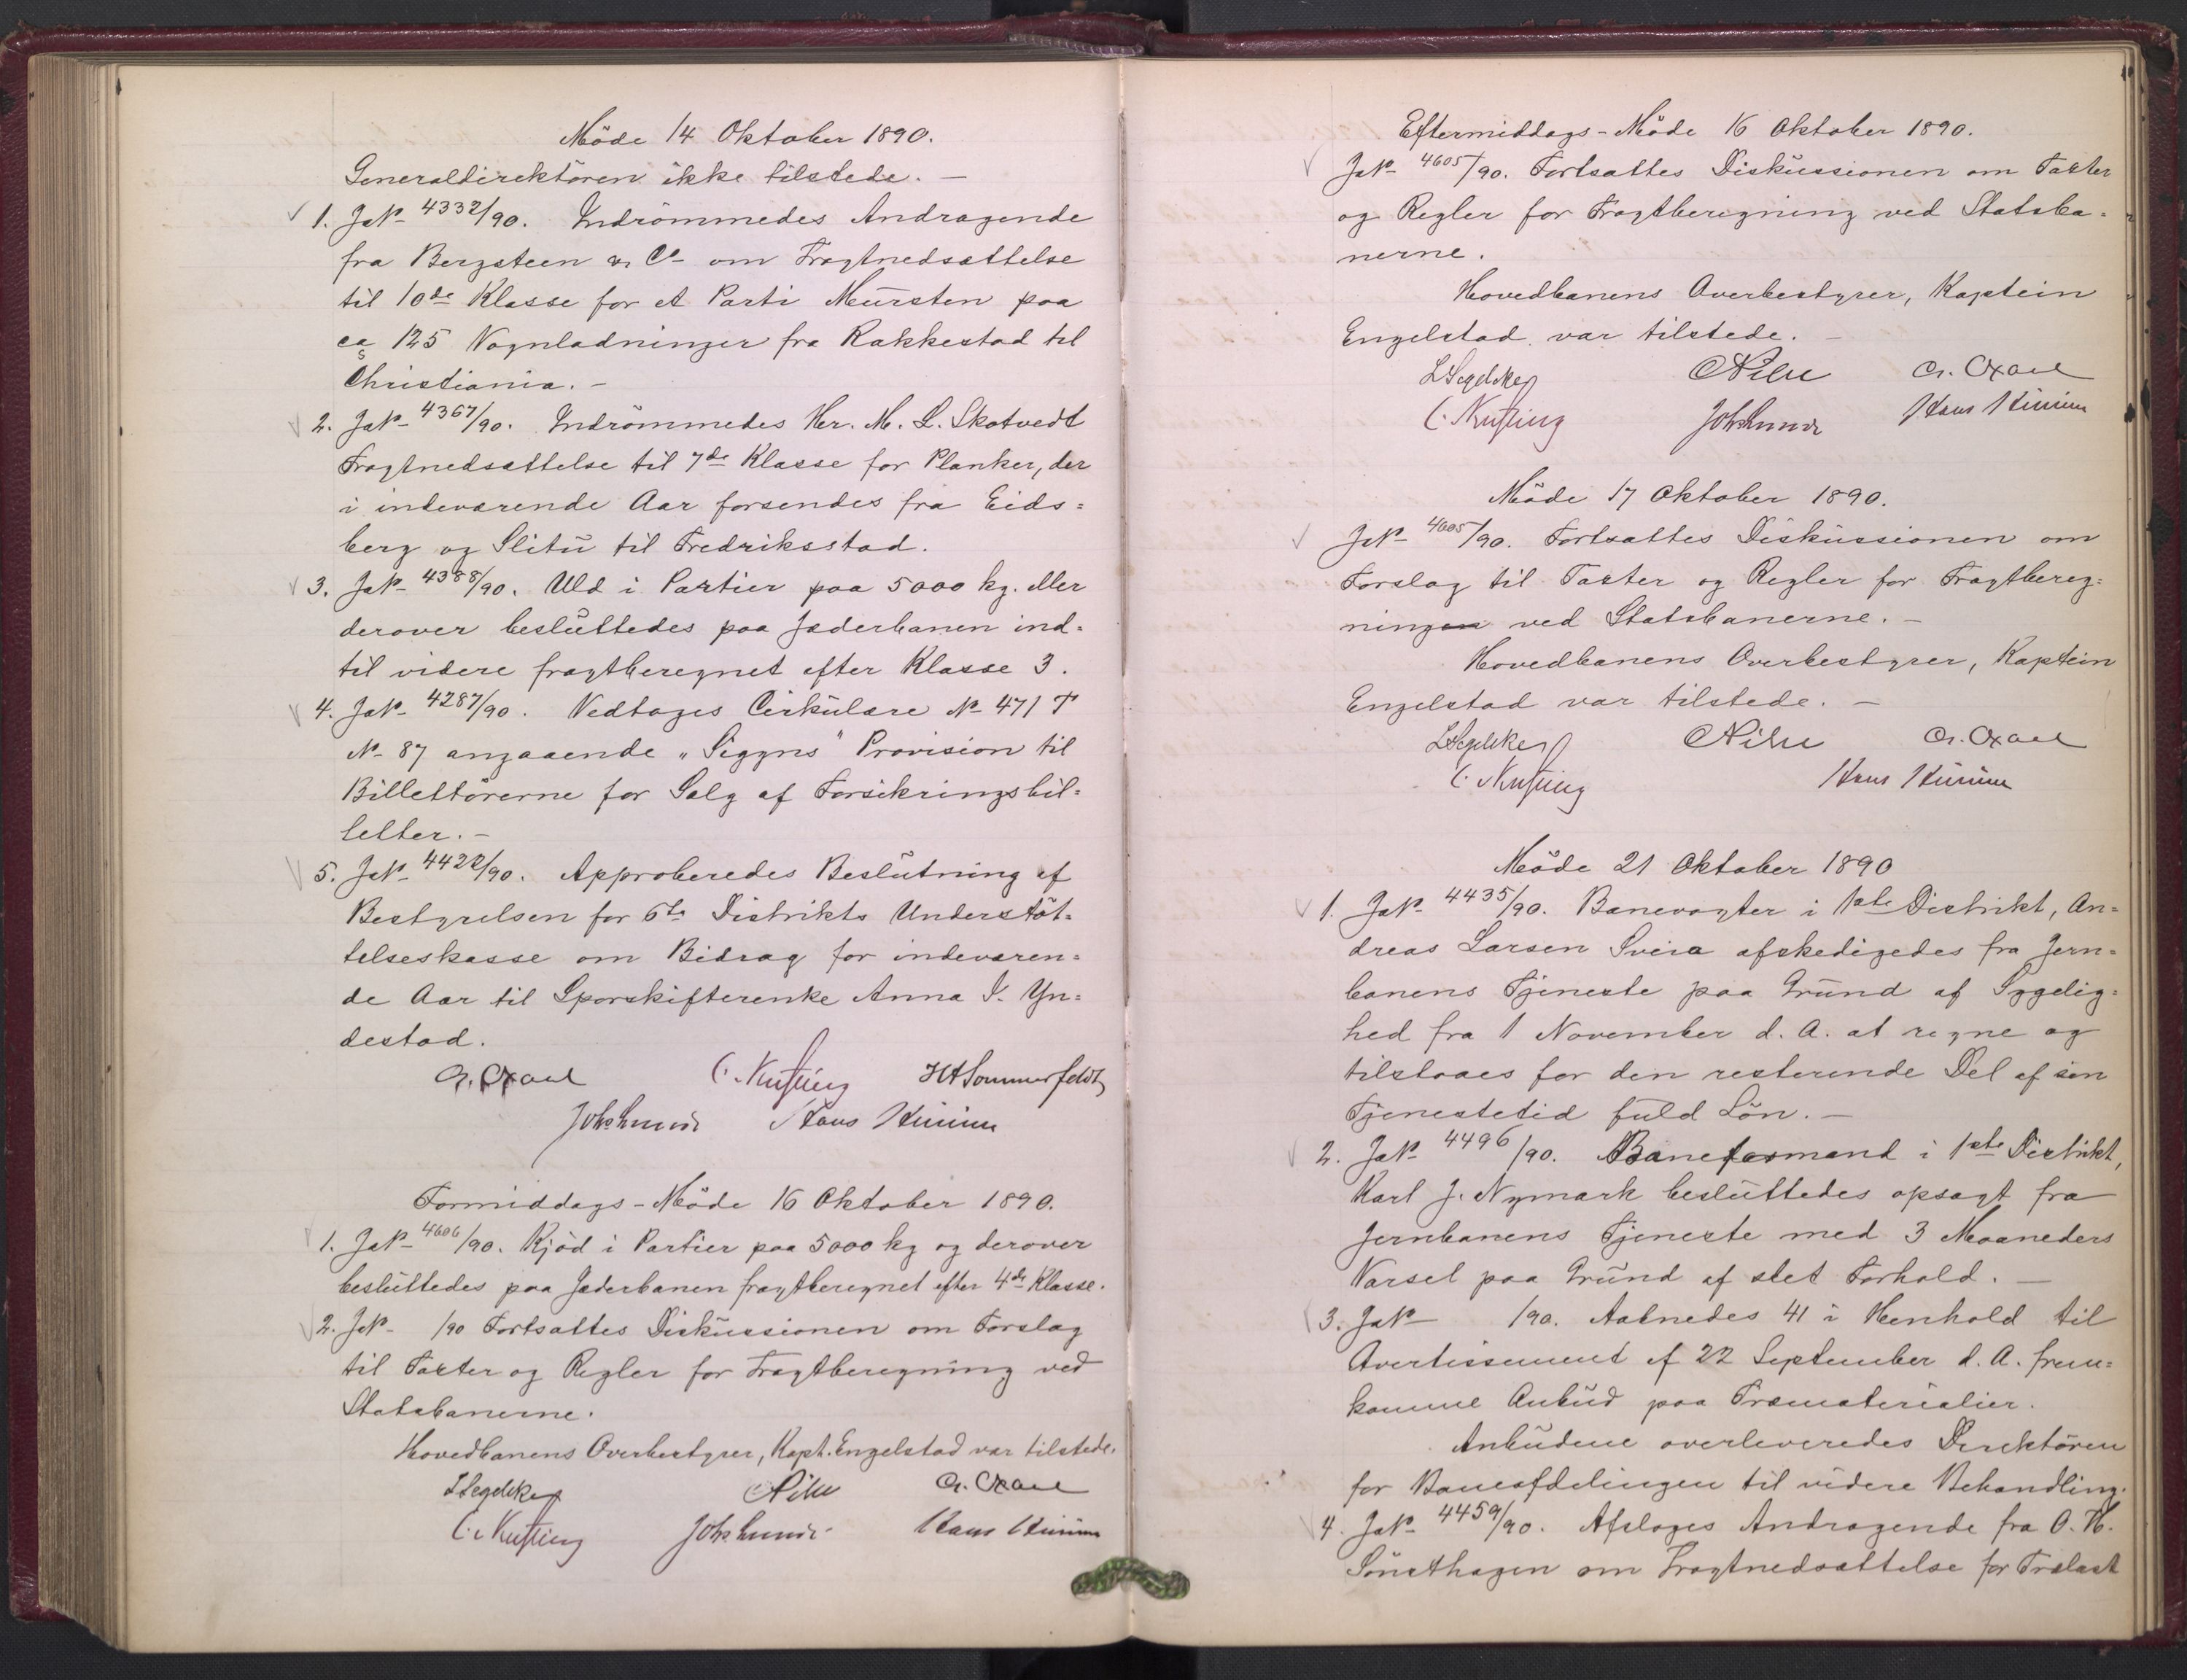 Møde 14 Oktober 1890.
Generaldirektøren ikke tilstede. —
1. JNº 4332/90. Indrømmedes Andragende
fra Bergsteen & Cº om Fragtnedsættelse
til 10de Klasse for et Parti Mursten paa
ca 125 Vognladninger fra Rakkestad til
Christiania. —
2. JNº 4367/90. Indrømmedes Hr. M. L. Skotvedt
Fragtnedsættelse til 7de Klasse for Planker, der
i indeværende Aar forsendes fra Eids=
berg og Slitu til Fredriksstad.
3. JNº 4388/90. Uld i Partier paa 5000 kg. eller
derover besluttedes paa Jæderbanen ind=
til videre fragtberegnet efter Klasse 3.
4. JNº 4287/90. Vedtoges Cirkulære Nº 471 T
Nº 87 angaaende "Sigyns" Provision til
Billettørerne for Salg af Forsikringsbil=
letter. —
5. JNº 4422/90. Approberedes Beslutning af
Bestyrelsen for 6te Distrikts Understøt=
telseskasse om Bidrag for indeværen=
de Aar til Sporskifterenke Anna I. Yn=
destad.
HASommerfeldt
Joh Lunde
Formiddags-Møde 16 Oktober 1890.
1. JNº 4606/90. Kjød i Partier paa 5000 kg og derover
besluttedes paa Jæderbanen fragtberegnet efter 4de Klasse.
2. JNº /90 Fortsattes Diskussionen om Forslag
til Taxter og Regler for Fragtberegning ved
Statsbanerne.
Hovedbanens Overbestyrer, Kapt. Engelstad var tilstede.
LSegelcke Nilu
Joh Lunde
Eftermiddags-Møde 16 Oktober 1890.
JNº 4605/90. Fortsattes Diskussionen om Taxter
og Regler for Fragtberegning ved Statsba=
nerne.
Hovedbanens Overbestyrer, Kaptein
Engelstad var tilstede. —
LSegelcke
Joh Lunde
Møde 17 Oktober 1890.
JNº 4605/90. Fortsattes Diskussionen om
Forslag til Taxter og Regler for Fragtbereg=
ningen ved Statsbanerne. —
Hovedbanens Overbestyrer, Kaptein
Engelstad var tilstede. —
LSegelcke
Møde 21 Oktober 1890
1. JNº 4435/90. Banevogter i 1ste Distrikt, An=
dreas Larsen Sveia afskedigedes fra Jern=
banens Tjeneste paa Grund af Sygelig=
hed fra 1 November d. A. at regne og
tilstaaes for den resterende Del af sin
Tjenestetid fuld Løn. —
2. JNº 4496/90. Baneformand i 1ste Distrikt,
Karl J. Nymark besluttedes opsagt fra
Jernbanens Tjeneste med 3 Maaneders
Varsel paa Grund af slet Forhold. —
3. JNº /90. Aabnedes 41 i Henhold til
Avertissement af 22 September d. A. frem=
komne Anbud paa Træmaterialier.
Anbudene overleveredes Direktøren
for Baneafdelingen til videre Behandling.
4. JNº 4459/90. Afsloges Andragende fra O. H.
Sønsthagen om Fragtnedsættelse for Trælast